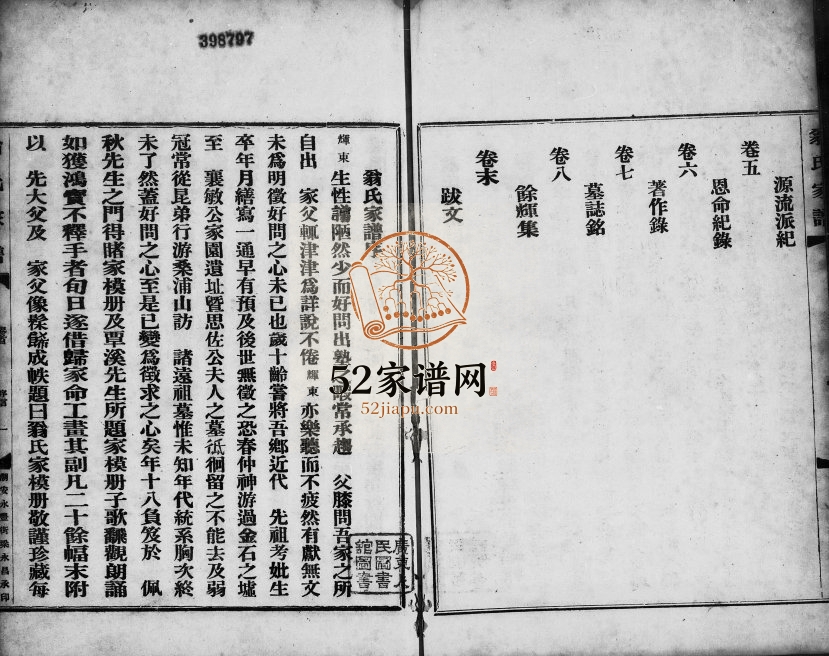 398797
翁氏家譜
源流派紀
卷五
恩命紀錄
卷六
著作錄
卷七
墓誌銘
卷八
餘輝集
卷末
跋文
翁氏家譜
輝東生性譾陋然少而好問出塾 暇常承趨 父膝問吾家之所
自出 家父輒津津為詳說不倦輝東亦樂聽而不疲然有獻無文
未為明徵好問之心未已也歲十齡嘗將吾鄉近代 先祖考妣生
卒年月繕寫一通早有預及後世無徵之恐春仲神游過金石之墟
至 襄敏公家園遺址暨思佐公夫人之墓祗徊留之不能去及弱
冠常從昆弟行游桑浦山訪 諸遠祖墓惟未知年代統系胸次終
未了然蓋好問之心至是已變為徵求之心矣年十八負笈於 佩
秋先生之門得睹家模册及覃溪先生所題家模册子歌飜觀朗誦
如獲鴻寶不釋手者旬日遂借歸家命工畫其副凡二十餘幅末附
以 先大父及 家父像 成帙題曰翁氏家模册敬謹珍藏每
潮安永 街梁永昌承印
廣東人
民圖書
館圖書
52家谱网
52jiapu.com